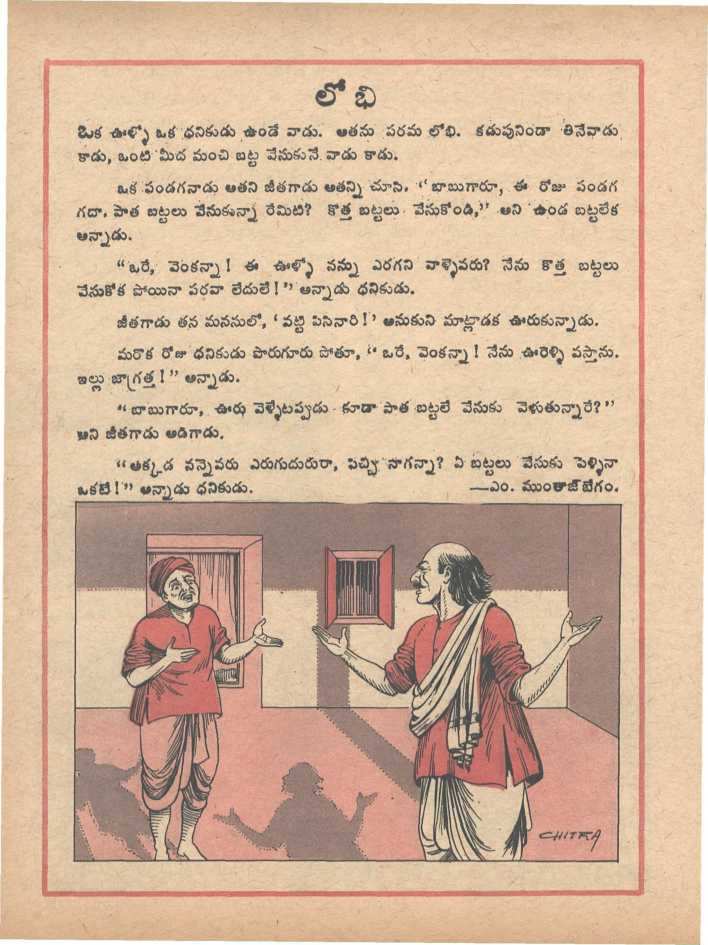 లోభి
ఒక ఊళ్ళో ఒక ధనికుడు ఉండే వాడు. అతను పరమ లోభి. కడుపునిండా తినేవాడు
కాడు, ఒంటి మీద మంచి బట్ట వేసుకునే వాడు కాడు.
ఒక పండగనాడు అతని జీతగాడు అతన్ని చూసి, “బాబుగారూ, ఈ రోజు పండగ
గదా. పాత బట్టలు వేసుకున్నా రేమిటి? కొత్త బట్టలు వేసుకోండి,” అని ఉండ బట్టలేక
అన్నాడు.
“ఒరే, వెంకన్నా! ఈ ఊళ్ళో నన్ను ఎరగని వాళ్ళెవరు? నేను కొత్త బట్టలు
వేసుకోక పోయినా పరవా లేదులే!” అన్నాడు ధనికుడు.
జీతగాడు తన మనసులో, ‘వట్టి పిసినారి!’ అనుకుని మాట్లాడక ఊరుకున్నాడు.
మరొక రోజు ధనికుడు పొరుగూరు పోతూ, “ఒరే, వెంకన్నా! నేను ఊరెళ్ళి వస్తాను.
ఇల్లు జాగ్రత్త!” అన్నాడు.
“బాబుగారూ, ఊరు వెళ్ళేటప్పుడు కూడా పాత బట్టలే వేసుకు వెళుతున్నారే?”
అని జీతగాడు అడిగాడు.
“అక్కడ నన్నెవరు ఎరుగుదురురా, పిచ్చి నాగన్నా? ఏ బట్టలు వేసుకు వెళ్ళినా
ఒకటే!” అన్నాడు ధనికుడు. —ఎం. ముంతాజ్ బేగం.
CHITRA